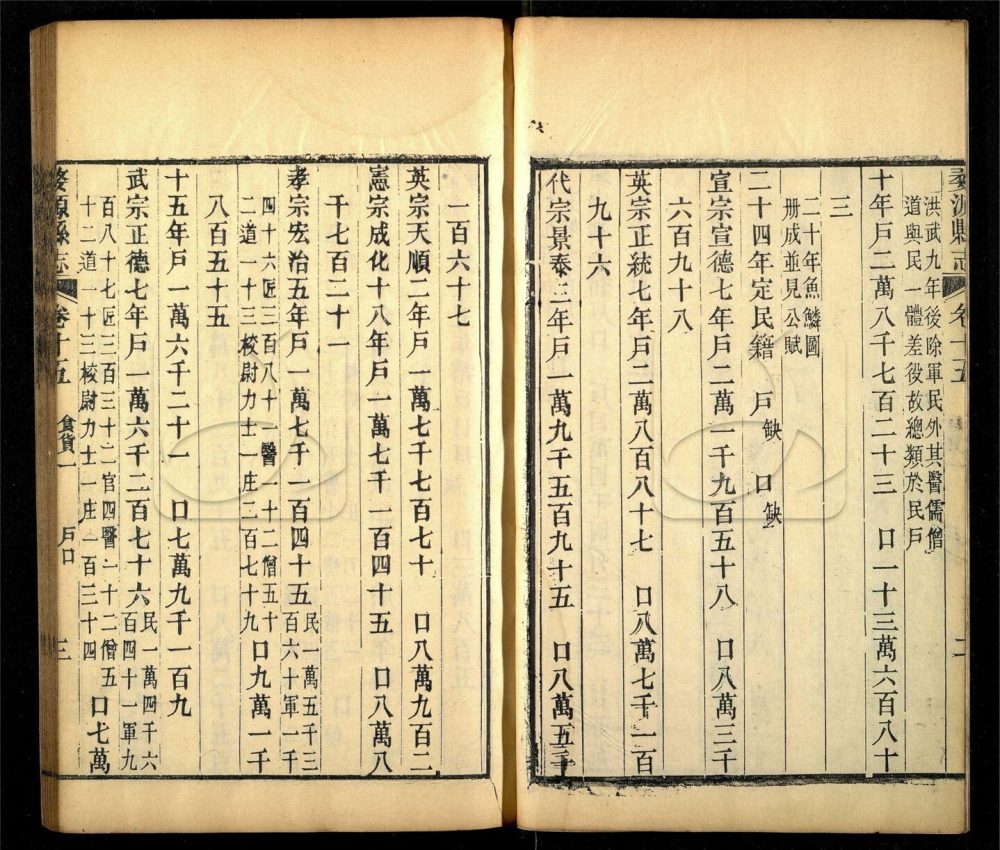 婺源縣志 卷十五 二
洪武九年後除軍民外其醫儒僧
道與民一體差役故總類於民戶
十年戶二萬八千七百二十三 口一十三萬六百八十
三
二十年魚鱗圖
冊成並見公賦
二十四年定民籍 戶缺 口缺
宣宗宣德七年戶二萬一千九百五十八 口八萬三千
六百九十八
英宗正統七年戶二萬八百八十七 口八萬七千一百
九十六
代宗景泰三年戶一萬九千五百九十五 口八萬五千
一百六十七
英宗天順二年戶一萬七千七百七十 口八萬九百二
憲宗成化十八年戶一萬七千一百四十五 口八萬八
千七百二十一
孝宗宏治五年戶一萬七千一百四十五民一萬五千三
百六十軍一千
四十六匠三百八十一醫一十二僧五十
二道一十三校尉力士一庄二百七十九口九萬一千
八百五十五
十五年戶一萬六千二十一 口七萬九千一百九
武宗正德七年戶一萬六千二百七十六民一萬四千六
百四十一軍九
百八十七匠三百三十二官四醫一十二僧五
十二道一十三校尉力士一庄一百三十四口七萬
婺源縣志 卷十五 食貨一 戶口 三